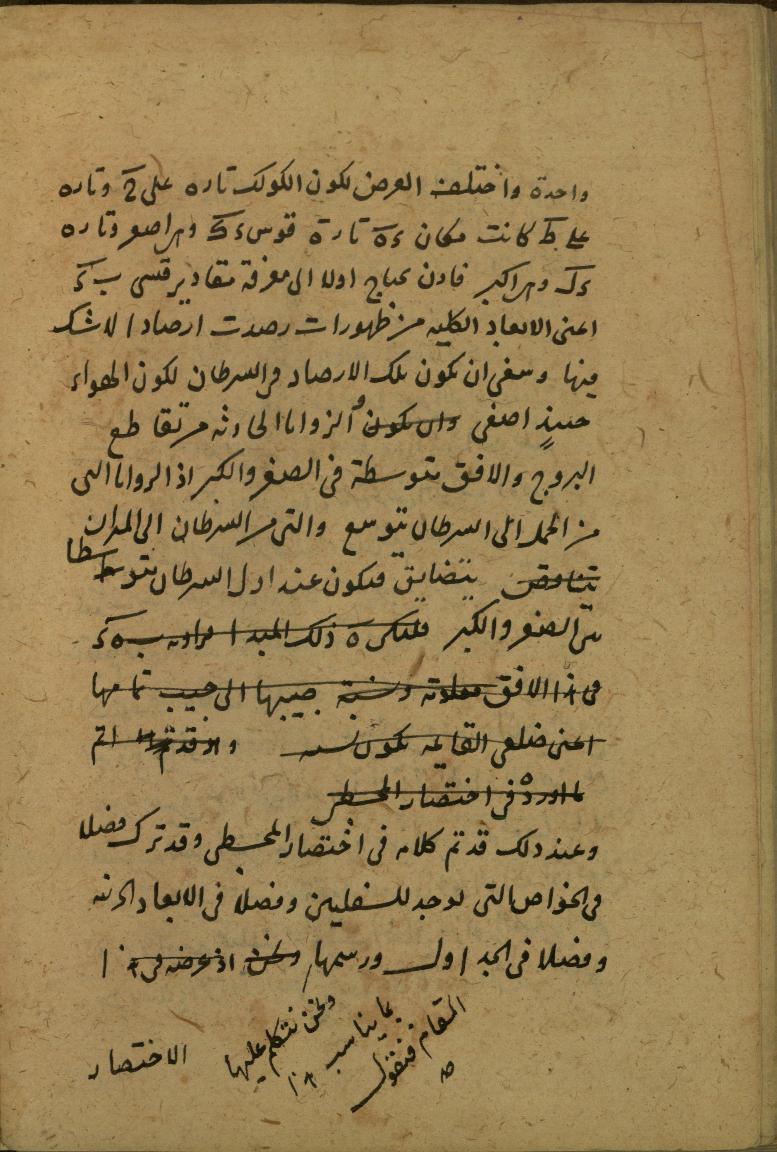 واحدة واختلف العرض لكون الكوكب تارة على ح وتارة
على ط كانت مكان ءه تارة قوس ءك وهى اصغر وتارة
ءل وهى اكبر فاذن نحتاج اولا الى معرفة مقادير قسى ب ءَ
اعنى الابعاد الكلية من ظهورات رصدت ارصادا لا شك
فيها وينبغى ان تكون تلك الارصاد فى السرطان لكون الهواء
حينئذٍ اصفى وان تكون الزوايا الحادثة من تقاطع
البروج والافق متوسطة فى الصغر والكبر اذ الزوايا التى
من الحمل الى السرطان تتوسع والتى من السرطان الى الميزان
تتناقص تتضايق فتكون عند اول السرطان متوسطا
بين الصغر والكبر فلتكن ه ذلك المبدا فزاوية ب ه ءَ
فى هذا الافق معلومة ونسبة جيبها الى جيب تمامها
اعنى ضلعى القائمة تكون نسبة واذ قد تم
ما اورده فى اختصار المجسطى
وعند ذلك قد تم كلامه فى اختصار المجسطى وقد ترك فصلا
فى الخواص التى توجد للسفليين وفصلا فى الابعاد الجزئية
وفصلا فى الجداول ورسمها ونحن اذ غرضه فى هذا
ونحن نتكلم عليها
بما يناسب هذا
المقام فنقول
صح
الاختصار